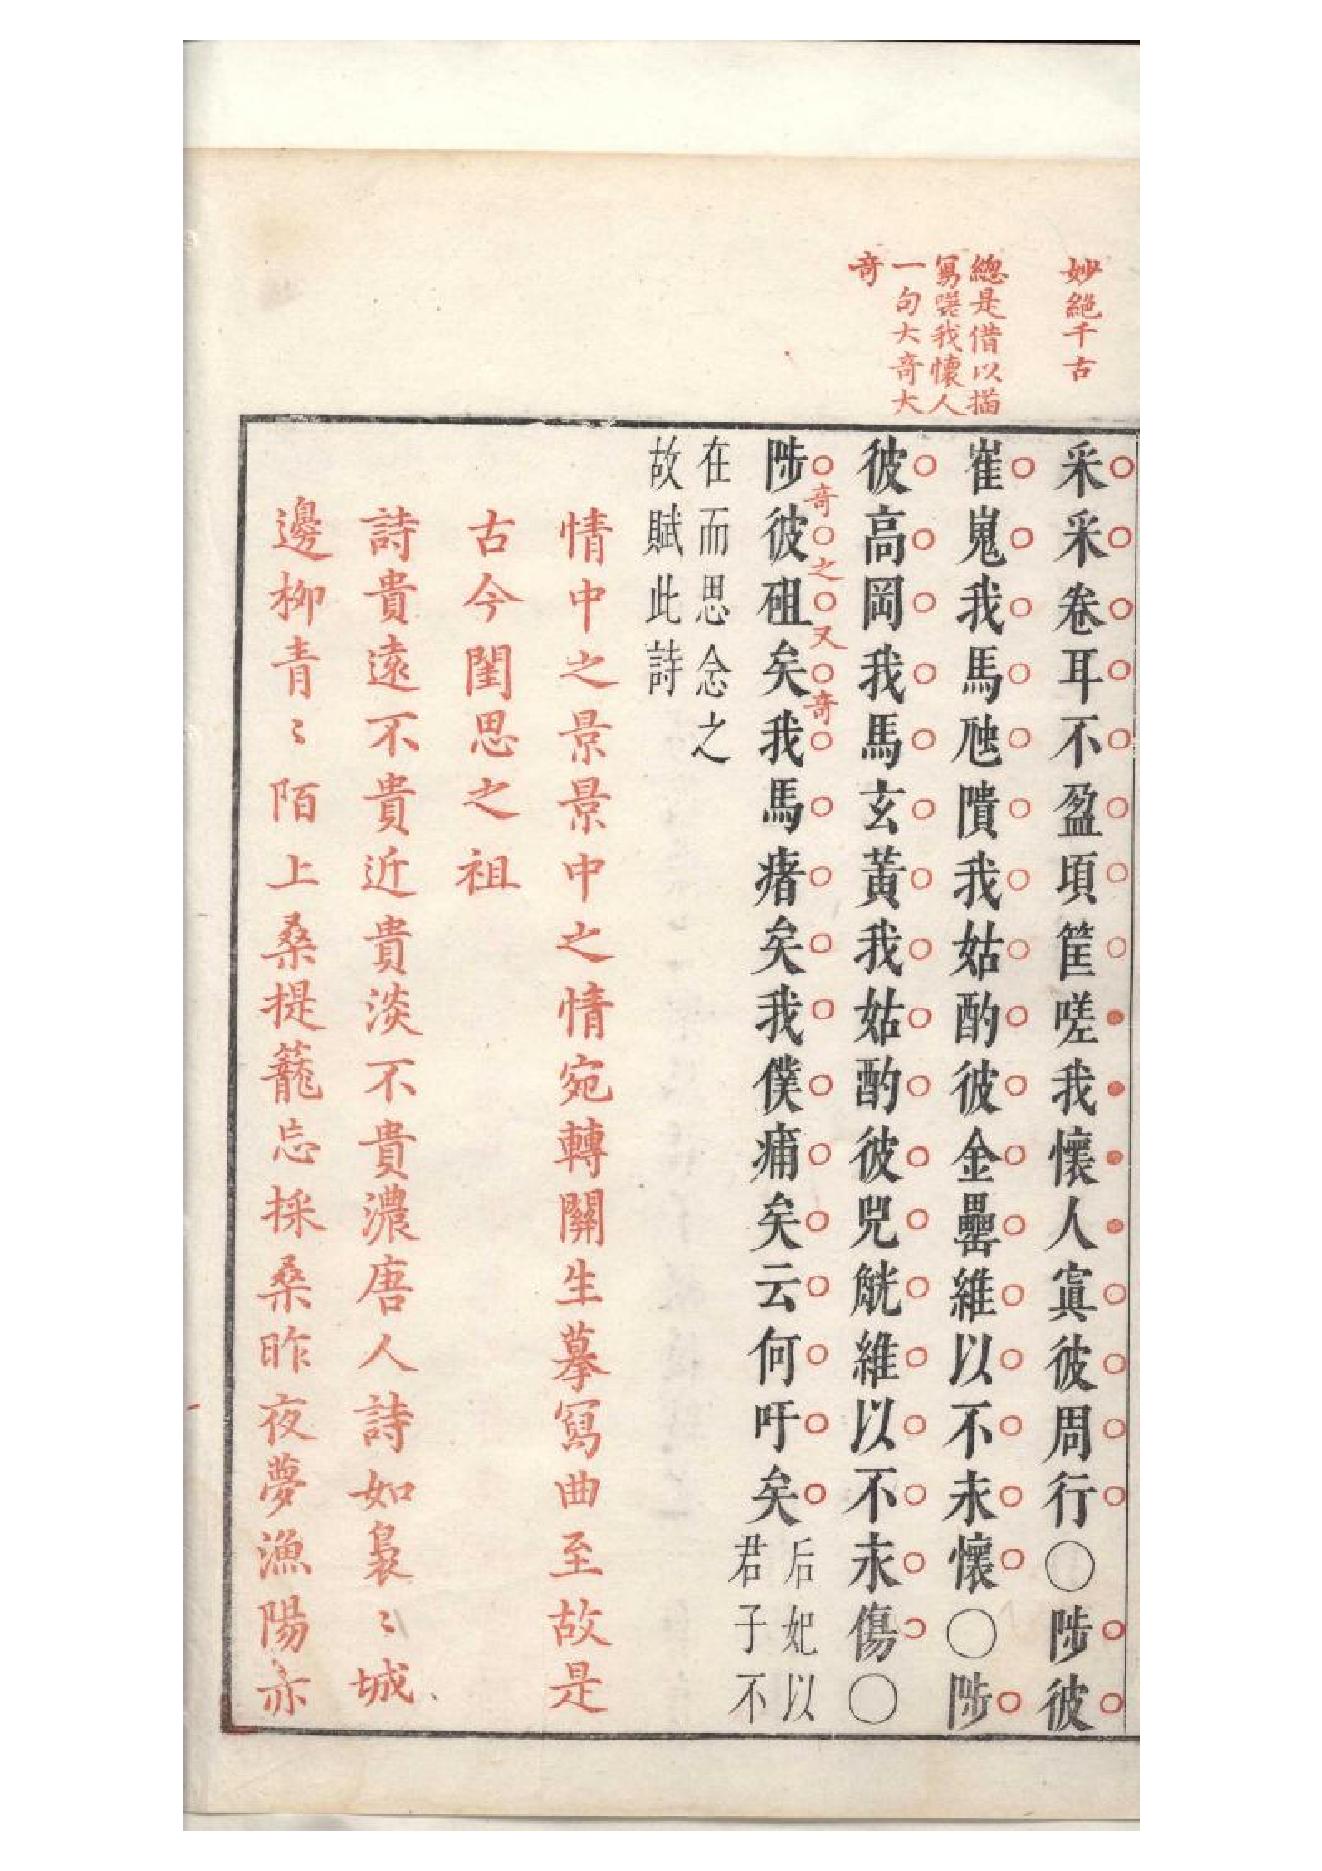 妙絶千古
總是借以描
寫嗟我懷人
一句大竒大
竒
采采卷耳不盈頃筐嗟我懷人寘彼周行○陟彼
崔嵬我馬虺隤我姑酌彼金罍維以不永懷○陟
彼高岡我馬玄黃我姑酌彼兕觥維以不永傷○
竒之又竒
陟彼砠矣我馬瘏矣我僕痡矣云何吁矣
后妃以
君子不
在而思念之
故賦此詩
情中之景景中之情宛轉關生摹寫曲至故是
古今閨思之祖
詩貴遠不貴近貴淡不貴濃唐人詩如裊〻城
邊柳青〻陌上桑提籠忘採桑昨夜夢漁陽亦